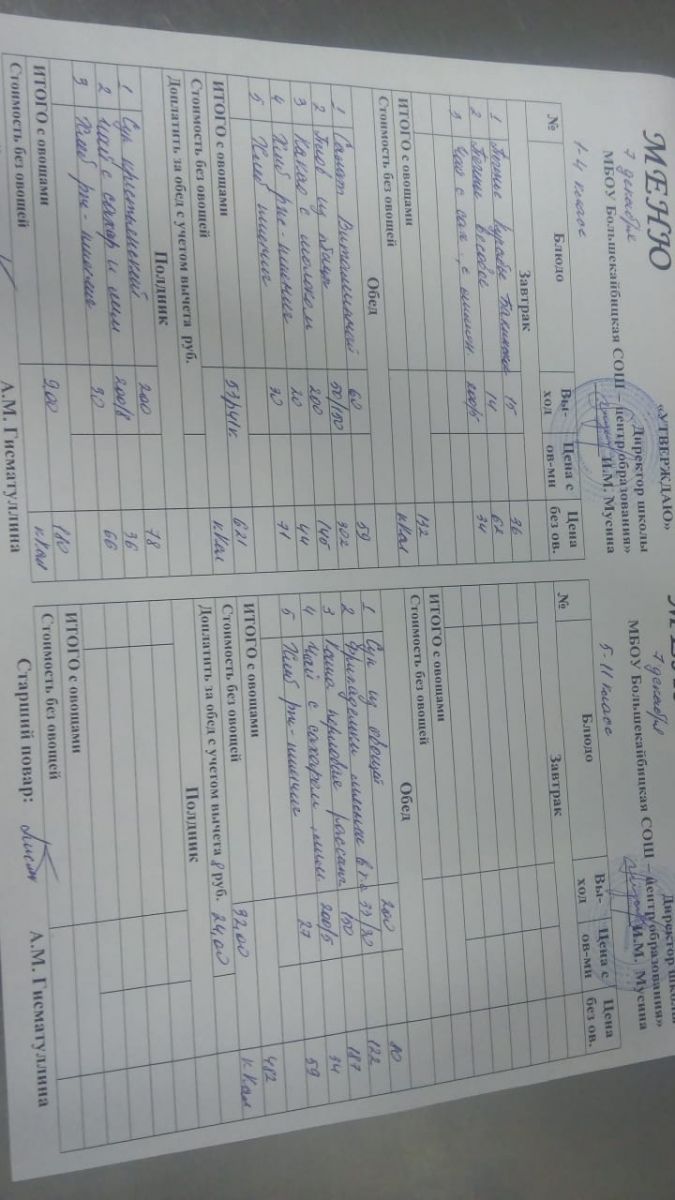 МЕНЮ
«УТВЕРЖДАЮ»
Директор школы
7 декабря
МБОУ Большекайбицкая СОШ –
центр образования»
И.М. Мусина
1-4 класс
№ Блюдо Вы-ход Цена с ов-ми Цена без ов.
Завтрак
1 15 96
2 весовое 14 62
3 Чай с сах., с 200/5 34
192
ИТОГО с овощами ккал
Стоимость без овощей
Обед
1 Салат Витаминный 60 59
2 Плов из птицы 50/150 302
3 Какао с молоком 200 145
4 Хлеб рж-пшенич 20 44
5 Хлеб пшенич 30 71
621
ИТОГО с овощами ккал
Стоимость без овощей
Доплатить за обед с учетом вычета руб.
Полдник
1 Суп крестьянский 200 78
2 Чай с сахар и лим 200/8 36
3 Хлеб рж-пшенич 30 66
180
ИТОГО с овощами 9,00 ккал
Стоимость без овощей
А.М. Гисматуллина
МЕНЮ
Директор школы
7 декабря
МБОУ Большекайбицкая СОШ –
центр образования»
И.М. Мусина
5-11 класс
№ Блюдо Вы-ход Цена с ов-ми Цена без ов.
Завтрак
ИТОГО с овощами
Стоимость без овощей
Обед
1 Суп из овощей 200 80
2 Фрикадельки 122
3 Каша перловая 150 187
4 Чай с сахаром, лим. 200/5 34
5 Хлеб рж-пшенич 27 59
482
ИТОГО с овощами 32,00 ккал
Стоимость без овощей
Доплатить за обед с учетом вычета 8 руб. 24,00
Полдник
ИТОГО с овощами
Стоимость без овощей
Старший повар: А.М. Гисматуллина